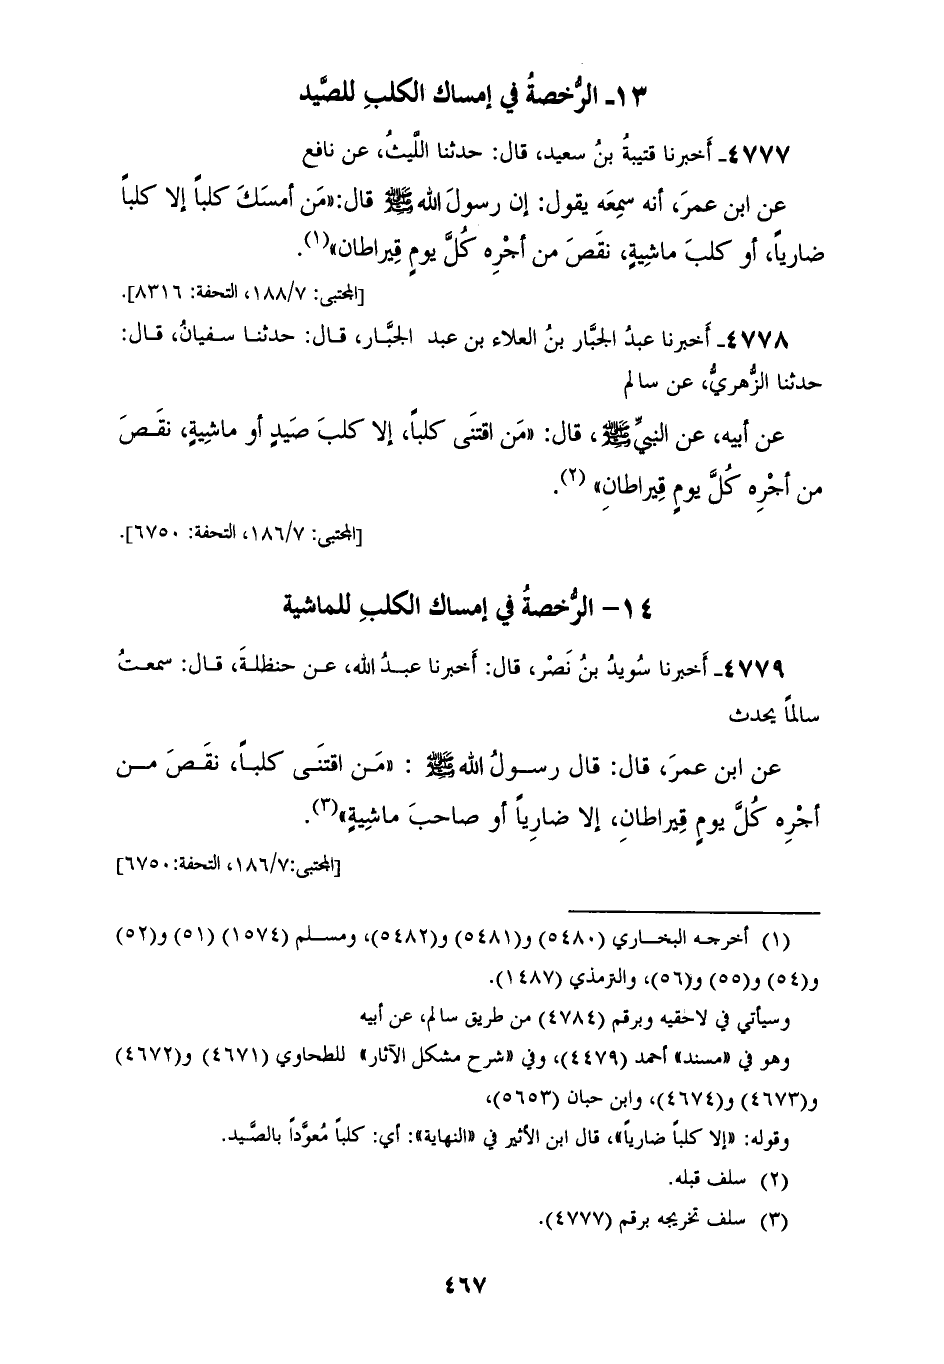 ١٣ـ الرُّخصةُ في إمساك الكلبِ للصَّيد
٤٧٧٧ـ أَخبرنا قتيبةُ بنُ سعيد، قال: حدثنا اللَّيثُ، عن نافع
عن ابن عمرَ، أنه سمِعَه يقول: إن رسولَ الله ﷺ قال:«مَن أمسَكَ كلباً إلا كلباً
ضارياً، أو كلبَ ماشِيةٍ، نقَصَ من أجْرِه كُلَّ يومٍ قِيراطان»(١).
[المجتبى: ١٨٨/٧، التحفة: ٨٣١٦].
٤٧٧٨ـ أَخبرنا عبدُ الجبَّار بنُ العلاء بن عبد الجبَّار، قال: حدثنا سفيانُ، قال:
حدثنا الزُّهريُّ، عن سالم
عن أبيه، عن النبيِّ ﷺ، قال: «مَن اقتنَى كلباً، إلا كلبَ صَيدٍ أو ماشِيةٍ، نقَصَ
من أجْرِه كُلَّ يومٍ قِيراطانِ» (٢).
[المجتبى: ١٨٦/٧، التحفة: ٦٧٥٠].
١٤ – الرُّخصةُ في إمساك الكلبِ للماشية
٤٧٧٩ـ أَخبرنا سُويدُ بنُ نَصْر، قال: أَخبرنا عبدُ الله، عن حنظلةَ، قال: سمعتُ
سالماً يحدث
عن ابن عمرَ، قال: قال رسولُ الله ﷺ : «مَن اقتنَى كلباً، نقَصَ من
أجْرِه كُلَّ يومٍ قِيراطانِ، إلا ضارِياً أو صاحبَ ماشِيةٍ»(٣).
[المجتبى:١٨٦/٧، التحفة:٦٧٥٠]
(١) أخرجه البخاري (٥٤٨٠) و(٥٤٨١) و(٥٤٨٢)، ومسلم (١٥٧٤) (٥١) و(٥٢)
و(٥٤) و(٥٥) و(٥٦)، والترمذي (١٤٨٧).
وسيأتي في لاحقيه وبرقم (٤٧٨٤) من طريق سالم، عن أبيه
وهو في «مسند» أحمد (٤٤٧٩)، وفي «شرح مشكل الآثار» للطحاوي (٤٦٧١) و(٤٦٧٢)
و(٤٦٧٣) و(٤٦٧٤)، وابن حبان (٥٦٥٣)،
وقوله: «إلا كلباً ضارياً»، قال ابن الأثير في «النهاية»: أي: كلباً مُعوَّداً بالصَّيد.
(٢) سلف قبله.
(٣) سلف تخريجه برقم (٤٧٧٧).
٤٦٧